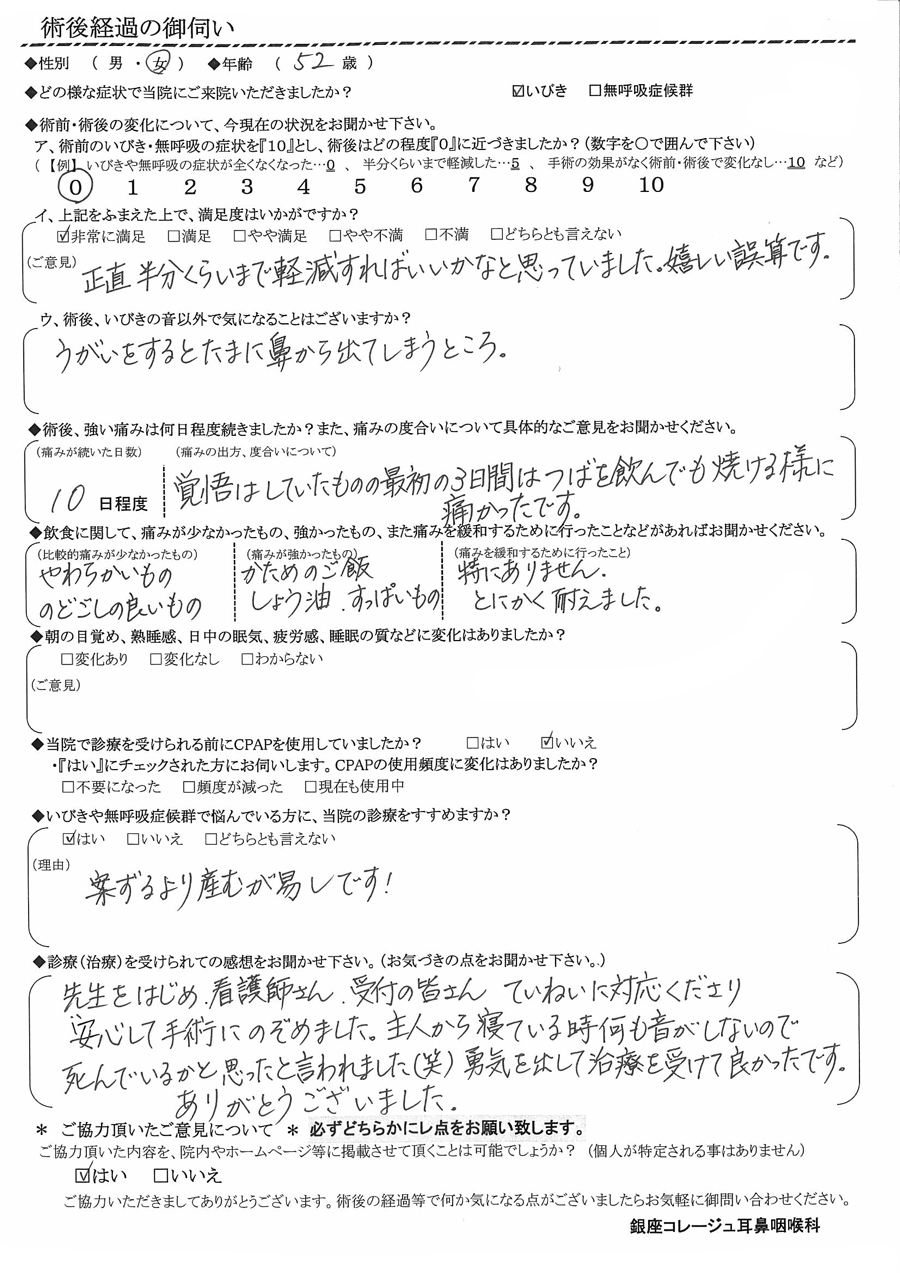 術後経過の御伺い
◆性別 （ 男 ・ 女 ） ◆年齢 （ 52 歳 ）
◆どの様な症状で当院にご来院いただきましたか？ ☑いびき □無呼吸症候群
◆術前・術後の変化について、今現在の状況をお聞かせ下さい。
ア、術前のいびき・無呼吸の症状を『10』とし、術後はどの程度『0』に近づきましたか？（数字を○で囲んで下さい）
（ 【例】 いびきや無呼吸の症状が全くなくなった…0 、 半分くらいまで軽減した…5 、 手術の効果がなく術前・術後で変化なし…10 など）
0 1 2 3 4 5 6 7 8 9 10
イ、上記をふまえた上で、満足度はいかがですか？
☑非常に満足 □満足 □やや満足 □やや不満 □不満 □どちらとも言えない
（ご意見） 正直 半分くらいまで軽減すればいいかなと思っていました。嬉しい誤算です。
ウ、術後、いびきの音以外で気になることはございますか？
うがいをするとたまに鼻から出てしまうところ。
◆術後、強い痛みは何日程度続きましたか？また、痛みの度合いについて具体的なご意見をお聞かせください。
（痛みが続いた日数） （痛みの出方、度合いについて）
10 日程度 覚悟はしていたものの最初の3日間はつばを飲んでも焼ける様に
痛かったです。
◆飲食に関して、痛みが少なかったもの、強かったもの、また痛みを緩和するために行ったことなどがあればお聞かせください。
（比較的痛みが少なかったもの） （痛みが強かったもの） （痛みを緩和するために行ったこと）
やわらかいもの かためのご飯 特にありません.
のどごしの良いもの しょう油、すっぱいもの とにかく耐えました。
◆朝の目覚め、熟睡感、日中の眠気、疲労感、睡眠の質などに変化はありましたか？
□変化あり □変化なし □わからない
（ご意見）
◆当院で診療を受けられる前にCPAPを使用していましたか？ □はい ☑いいえ
・『はい』にチェックされた方にお伺いします。CPAPの使用頻度に変化はありましたか？
□不要になった □頻度が減った □現在も使用中
◆いびきや無呼吸症候群で悩んでいる方に、当院の診療をすすめますか？
☑はい □いいえ □どちらとも言えない
（理由）
案ずるより産むが易しです！
◆診療（治療）を受けられての感想をお聞かせ下さい。（お気づきの点をお聞かせ下さい。）
先生をはじめ、看護師さん、受付の皆さん ていねいに対応くださり
安心して手術にのぞめました。主人から寝ている時何も音がしないので
死んでいるかと思ったと言われました（笑）勇気を出して治療を受けて良かったです。
ありがとうございました。
＊ ご協力頂いたご意見について ＊ 必ずどちらかにレ点をお願い致します。
ご協力頂いた内容を、院内やホームページ等に掲載させて頂くことは可能でしょうか？ （個人が特定される事はありません）
☑はい □いいえ
ご協力いただきましてありがとうございます。術後の経過等で何か気になる点がございましたらお気軽に御問い合わせください。
銀座コレージュ耳鼻咽喉科